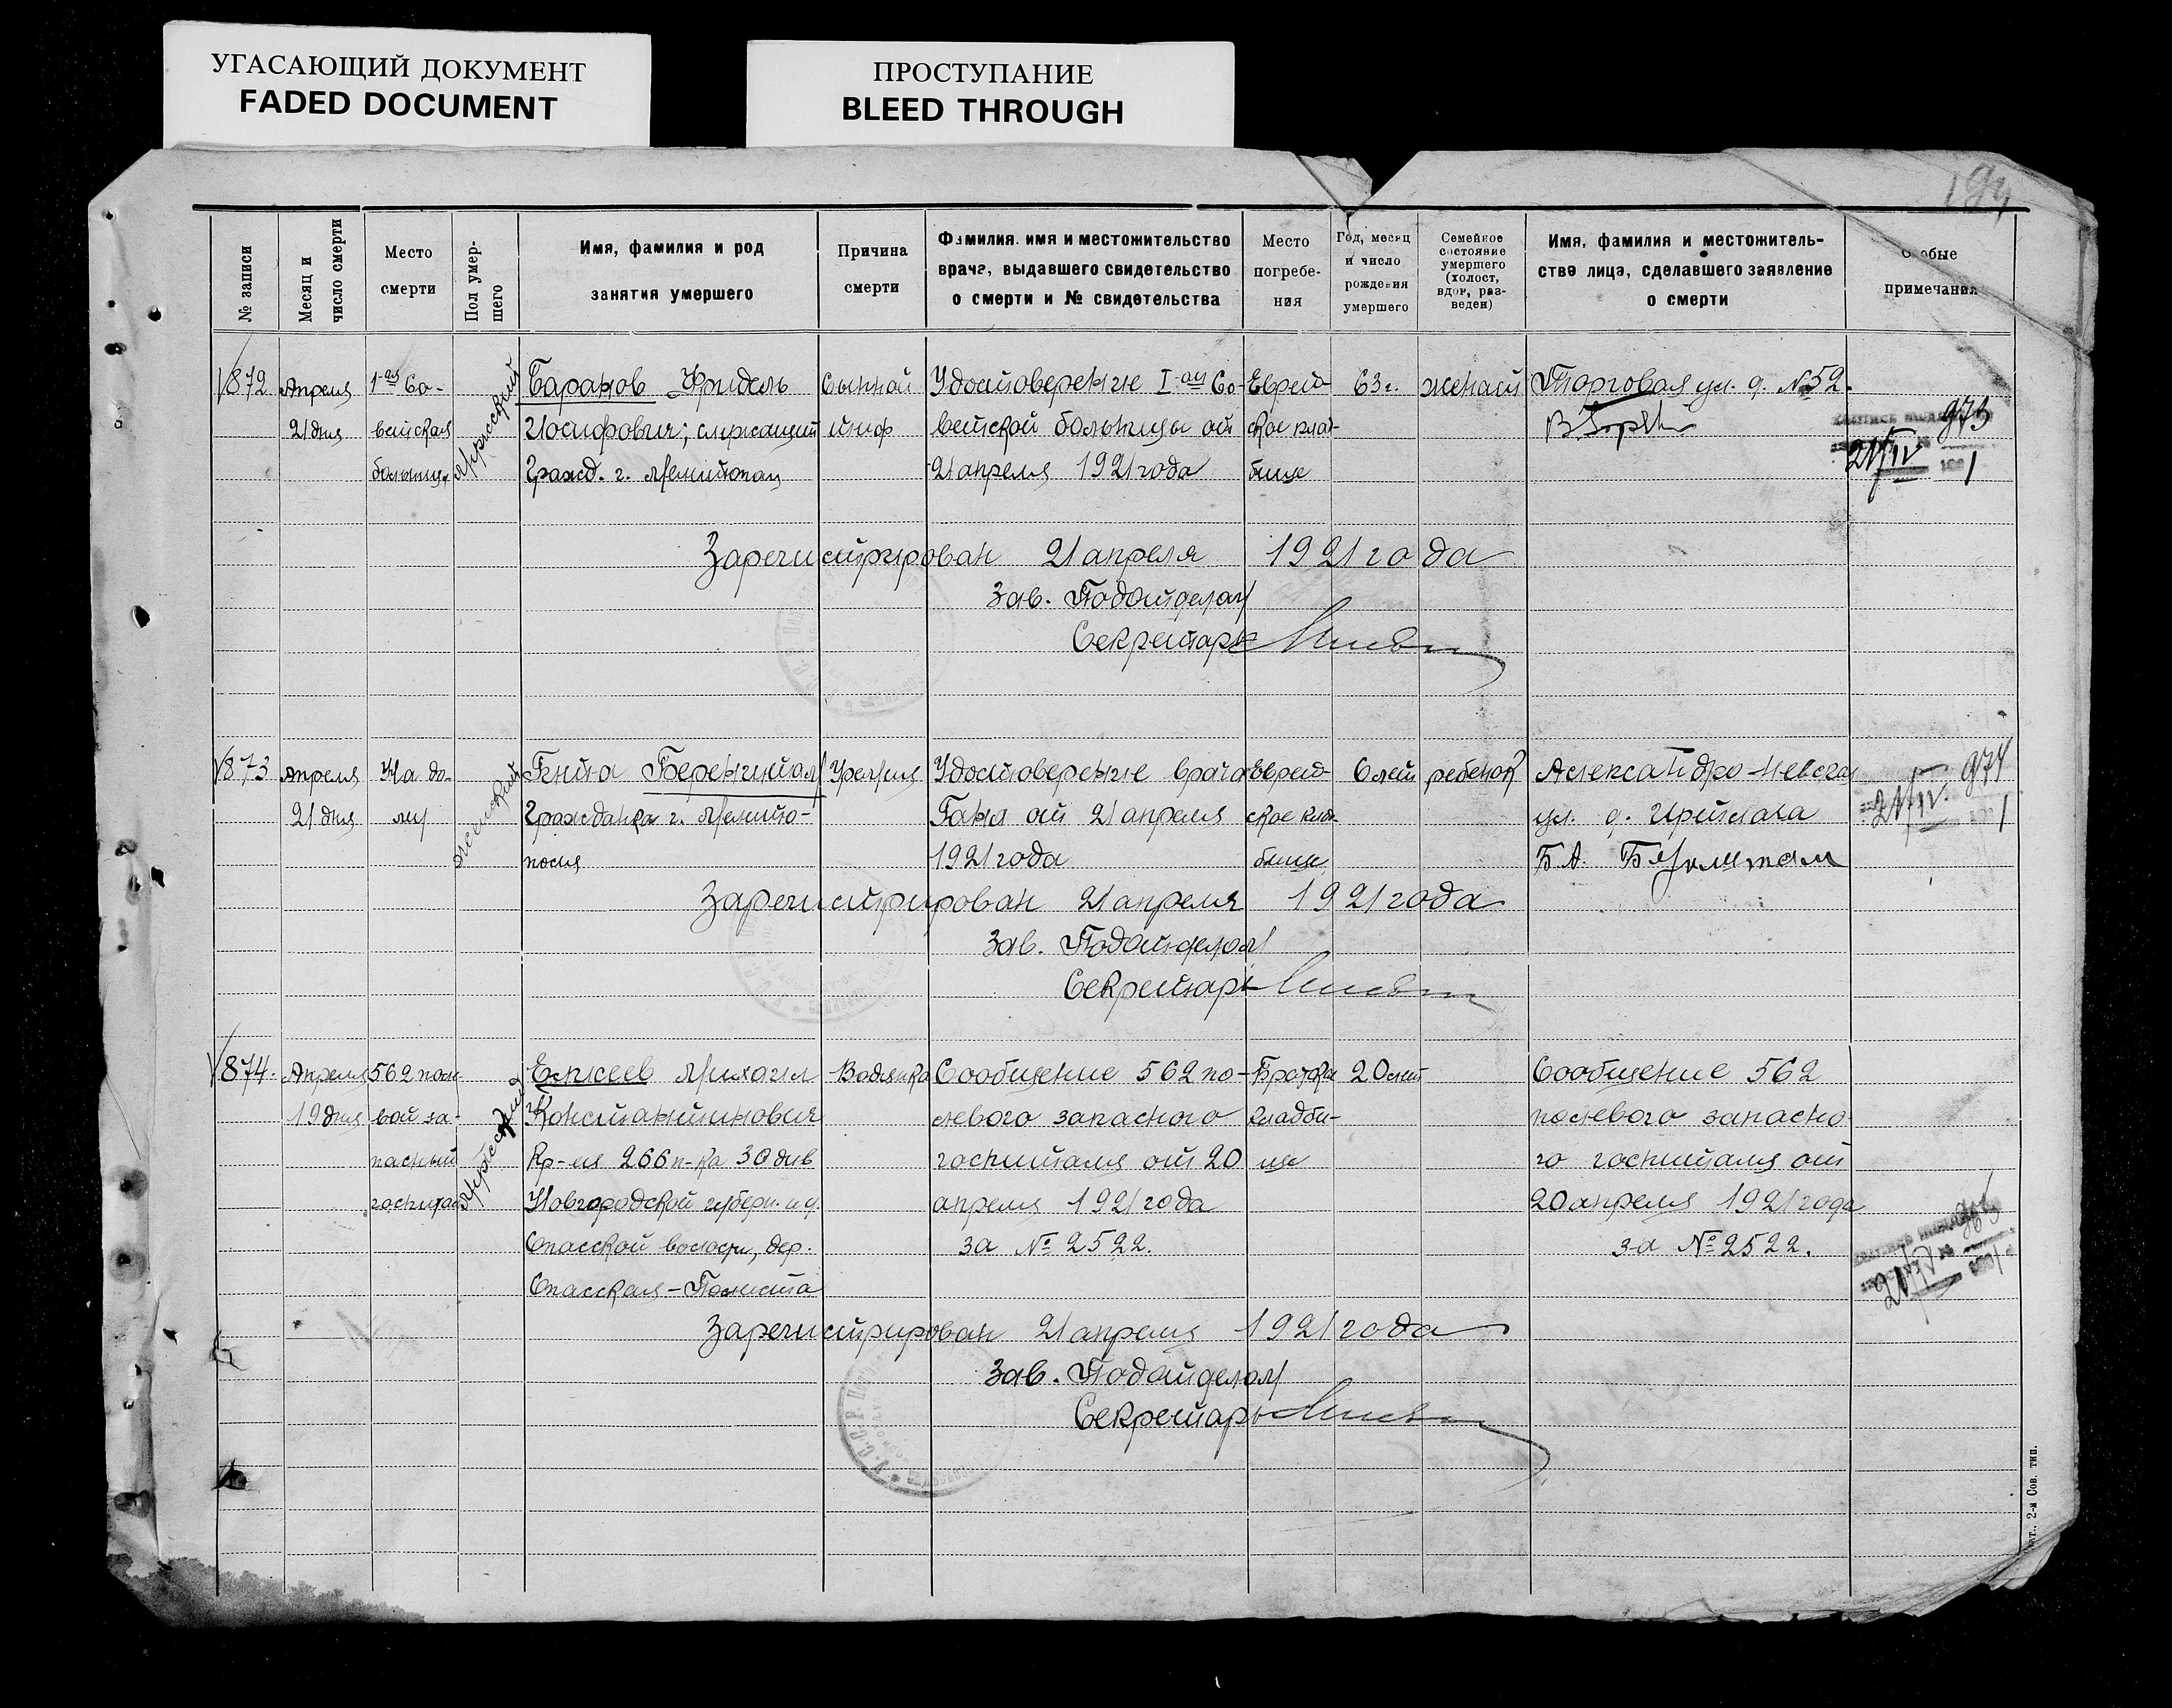 УГАСАЮЩИЙ ДОКУМЕНТ
FADED DOCUMENT
ПРОСТУПАНИЕ
BLEED THROUGH
№ записи
Месяц и число смерти
Место смерти
Пол умершего
Имя, фамилия и род занятия умершего
Причина смерти
Фамилия, имя и местожительство врача, выдавшего свидетельство о смерти и № свидетельства
Место погребения
Год, месяц и число рождения умершего
Семейное состояние умершего (холост, вдов, разведен)
Имя, фамилия и местожительство лица, сделавшего заявление о смерти
Особые примечания
872 Апреля 1-ая Со- мужской Баранов Фридель Сыпной Удостоверение I-ой Со- Еврей- 63 г. женат Торговая ул. д. №52.
21 дня ветская Иосифович; служащий тиф ветской больницы от ское клад-
больница Гражд. г. Мелитополя 21 апреля 1921 года бище
973
21/IV 1
Зарегистрирован 21 апреля 1921 года
Зав. Подотделом
Секретарь
873 Апреля На до- женский Гента Беренштам Уремия Удостоверение врача Еврей- 6 лет ребенок Александро-Невская
21 дня му Гражданка г. Мелито- от 21 апреля ское клад- ул. д.
поля 1921 года бище Б. А.
974
21/IV. 1
Зарегистрирован 21 апреля 1921 года
Зав. Подотделом
Секретарь
874. Апреля 562 поле- мужской Елисеев Михаил Водянка Сообщение 562 по- Братск. 20 лет Сообщение 562
19 дня вой за- Константинович левого запасного кладби- полевого запасно-
пасный Кр-ец 266 п-ка 30 див госпиталя от 20 ще го госпиталя от
госпиталь Новгородской губерн. и у. апреля 1921 года 20 апреля 1921 года
Спасской волости, дер. за № 2522. за № 2522.
Спасская-Полиста
Зарегистрирован 21 апреля 1921 года
Зав. Подотделом
Секретарь
2-я Сов. тип.